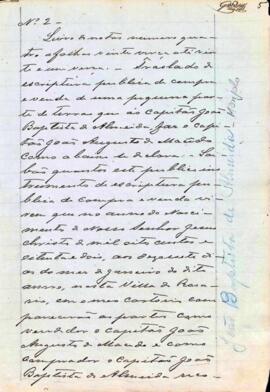 5
Nº 2 -
Livro de notas numero qua-
tro, a folha vinte
e uma. Traslado de
escriptura publica de compra
e venda de uma pequena parte
de terra que ao Capitão João
Baptista de Almeida, faz o capi-
tão João Augusto de
como abaixo se declara. - Sai-
bão quantos este publico ins-
trumento de escriptura pu-
blica de compra e venda vi-
rem que no anno do Nasci-
mento de Nosso Senhor Jesus
Christo de mil oito centos e
oitenta e dois, aos dezoito di-
as do mez de Janeiro do dito
anno, nesta Villa do
em meu cartorio com-
pareceram as partes como
vendedor o capitão João
Augusto de e como
comprador o Capitão João
Baptista de Almeida
João Baptista de Almeida